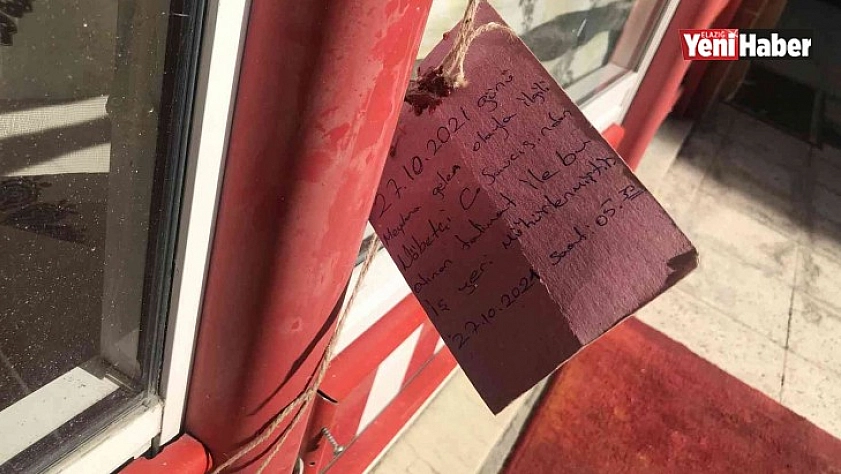 ELAZIĞ
Yeni Haber
27.10.2021 günü
Meydana gelen olayla ilgili
Nöbetçi C. Savcısından
alınan talimat ile bu
iş yeri mühürlenmiştir.
27.10.2021 Saat: 05.